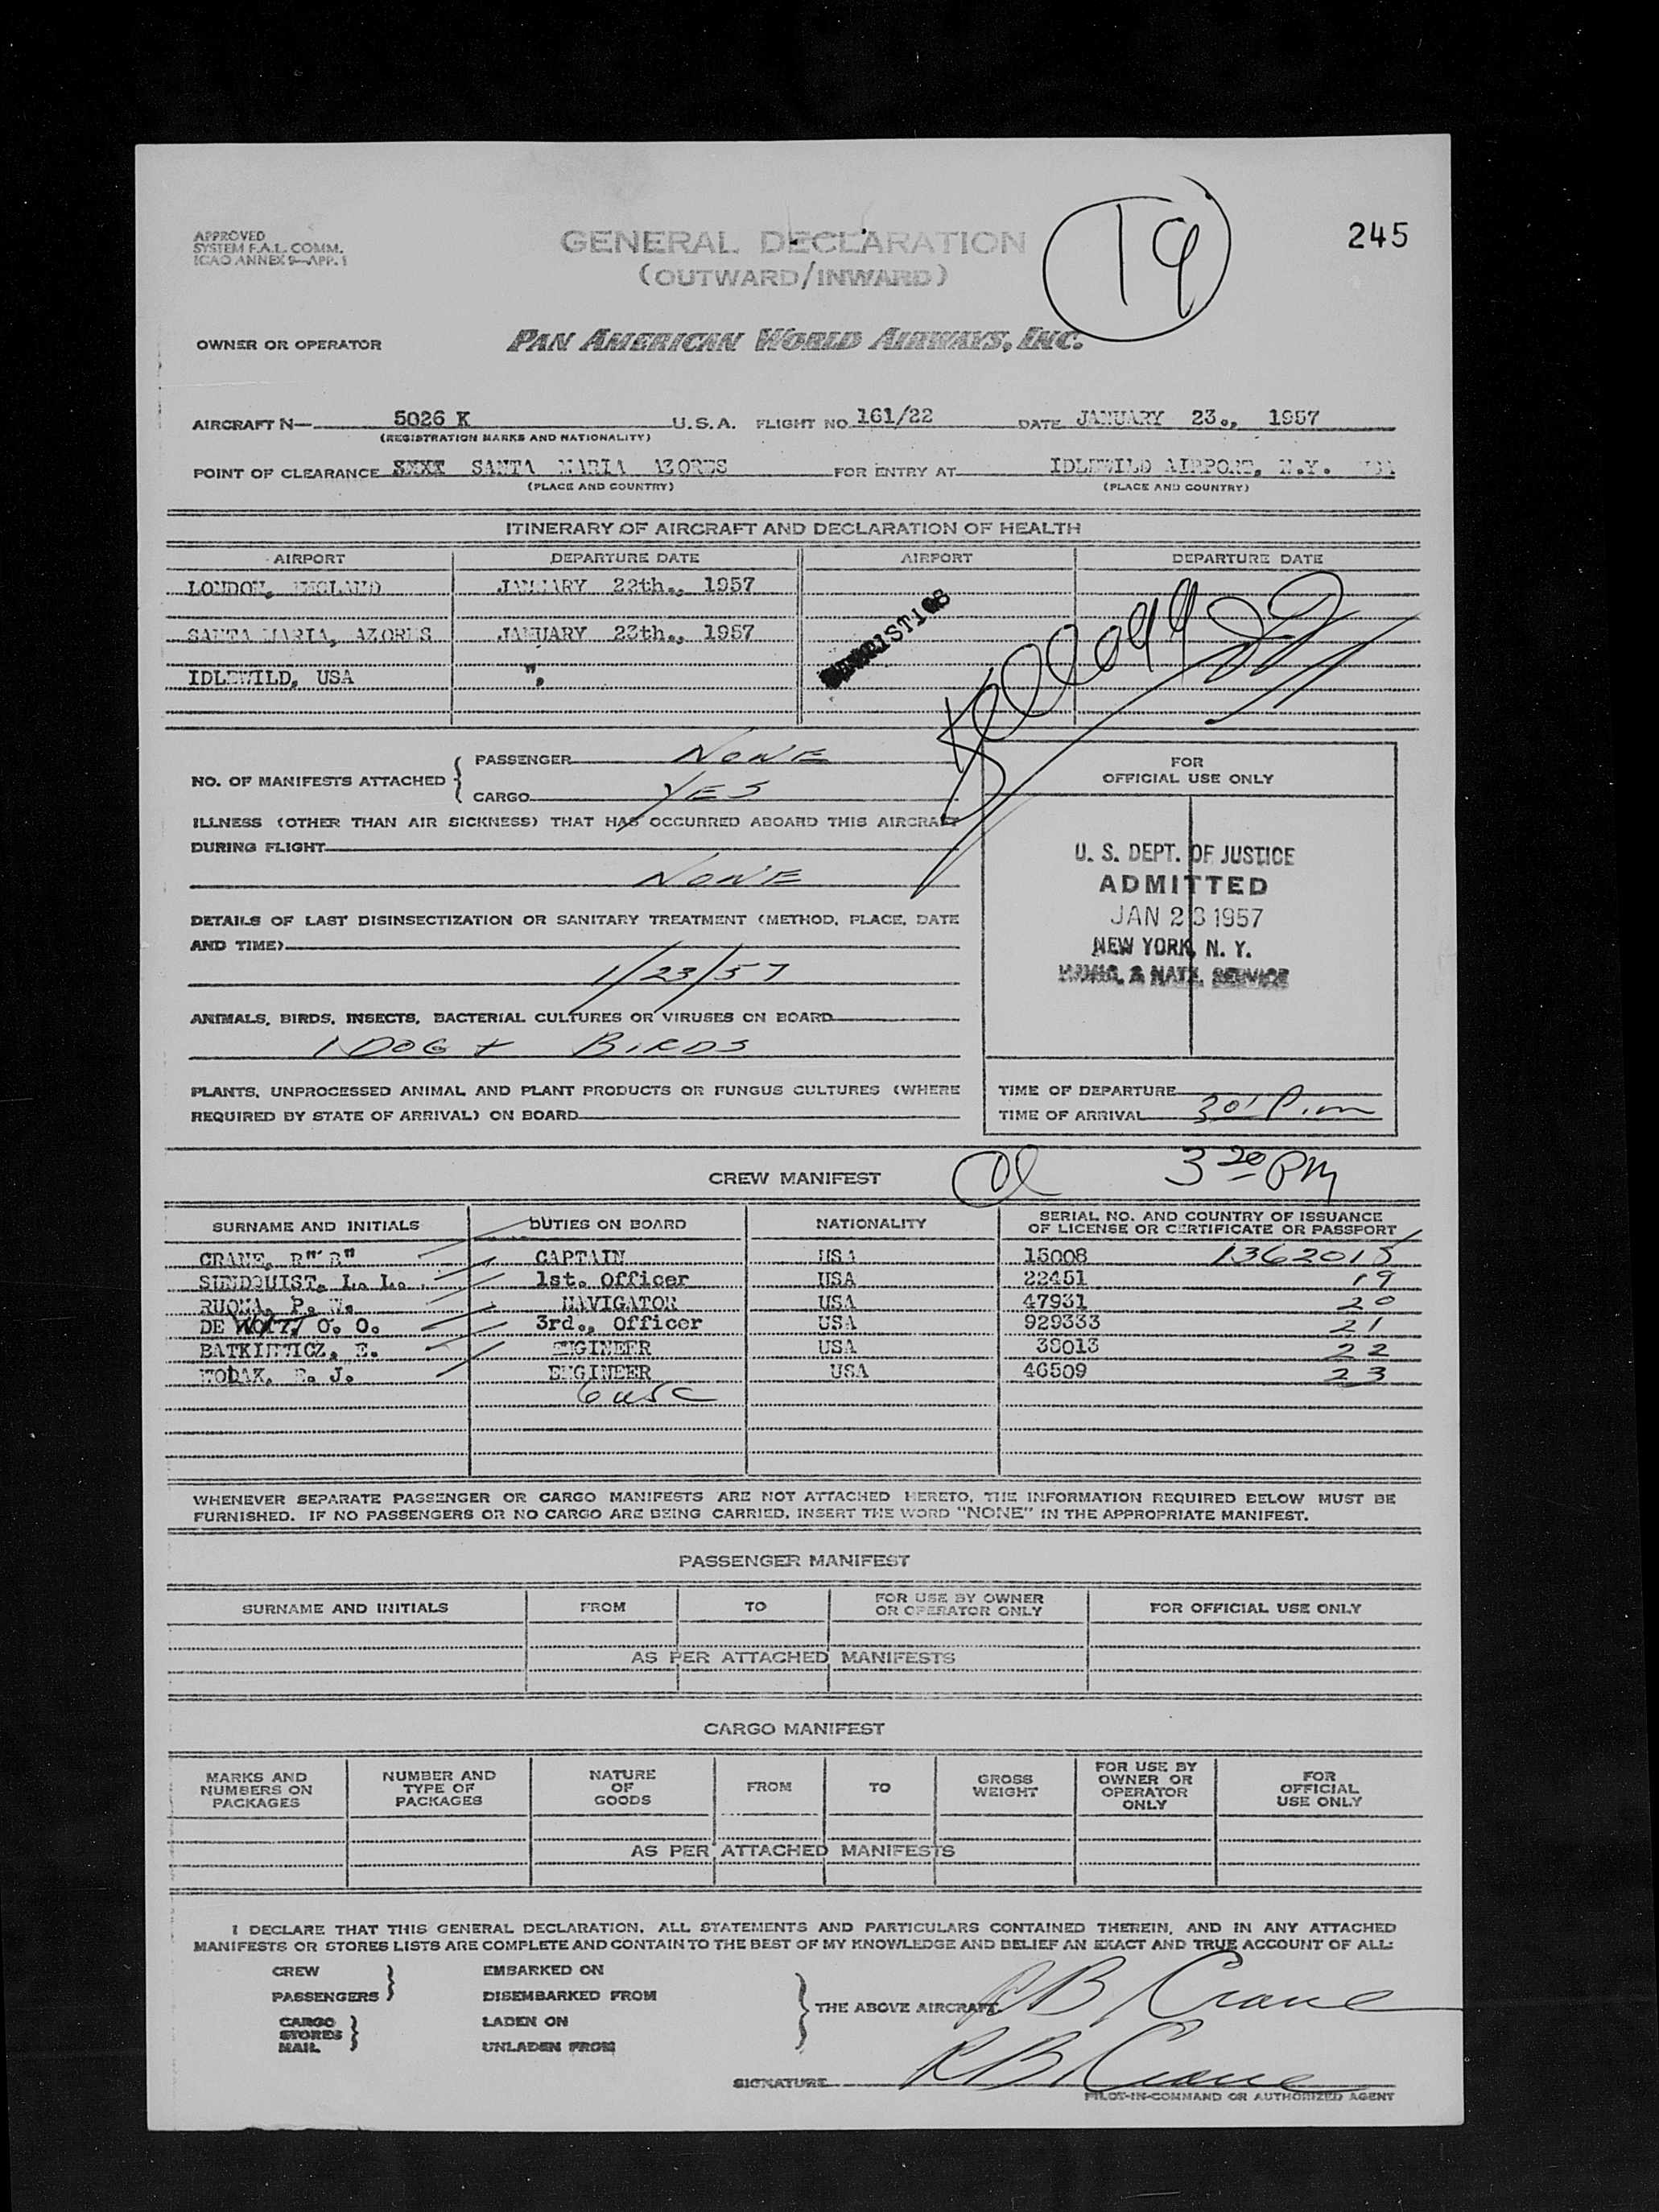 APPROVED
SYSTEM F.A.L. COMM.
ICAO ANNEX 9—APP. 1
GENERAL DECLARATION
(OUTWARD/INWARD)
19
245
OWNER OR OPERATOR PAN AMERICAN WORLD AIRWAYS, INC.
AIRCRAFT N— 5026 K U.S.A. FLIGHT NO. 161/22 DATE JANUARY 23., 1957
(REGISTRATION MARKS AND NATIONALITY)
POINT OF CLEARANCE SXXX SANTA MARIA AZORES FOR ENTRY AT IDLEWILD AIRPORT, N.Y.
(PLACE AND COUNTRY) (PLACE AND COUNTRY)
ITINERARY OF AIRCRAFT AND DECLARATION OF HEALTH
AIRPORT DEPARTURE DATE AIRPORT DEPARTURE DATE
LONDON, ENGLAND JANUARY 22th., 1957
SANTA MARIA, AZORES JANUARY 23th., 1957
IDLEWILD, USA ".
STATISTICS
Kellogg
NO. OF MANIFESTS ATTACHED { PASSENGER NONE
CARGO YES
ILLNESS (OTHER THAN AIR SICKNESS) THAT HAS OCCURRED ABOARD THIS AIRCRAFT
DURING FLIGHT
NONE
DETAILS OF LAST DISINSECTIZATION OR SANITARY TREATMENT (METHOD, PLACE, DATE
AND TIME)
1/23/57
ANIMALS, BIRDS, INSECTS, BACTERIAL CULTURES OR VIRUSES ON BOARD
1 DOG + BIRDS
PLANTS, UNPROCESSED ANIMAL AND PLANT PRODUCTS OR FUNGUS CULTURES (WHERE
REQUIRED BY STATE OF ARRIVAL) ON BOARD
FOR
OFFICIAL USE ONLY
U. S. DEPT. OF JUSTICE
ADMITTED
JAN 23 1957
NEW YORK, N. Y.
IMMIG. & NATZ. SERVICE
TIME OF DEPARTURE
TIME OF ARRIVAL 301 P.m
3 20 PM
CREW MANIFEST
SURNAME AND INITIALS DUTIES ON BOARD NATIONALITY SERIAL NO. AND COUNTRY OF ISSUANCE
OF LICENSE OR CERTIFICATE OR PASSPORT
CRANE, R"B" CAPTAIN USA 15008 1362018
SUNDQUIST, L. L. 1st. Officer USA 22451 19
RUOMA, P. W. NAVIGATOR USA 47931 20
DE WOTT, O. O. 3rd., Officer USA 929333 21
BATKIEWICZ, E. ENGINEER USA 38013 22
WODAK, E. J. ENGINEER USA 46509 23
6 USC
WHENEVER SEPARATE PASSENGER OR CARGO MANIFESTS ARE NOT ATTACHED HERETO, THE INFORMATION REQUIRED BELOW MUST BE
FURNISHED. IF NO PASSENGERS OR NO CARGO ARE BEING CARRIED, INSERT THE WORD "NONE" IN THE APPROPRIATE MANIFEST.
PASSENGER MANIFEST
SURNAME AND INITIALS FROM TO FOR USE BY OWNER
OR OPERATOR ONLY FOR OFFICIAL USE ONLY
AS PER ATTACHED MANIFESTS
CARGO MANIFEST
MARKS AND
NUMBERS ON
PACKAGES
NUMBER AND
TYPE OF
PACKAGES
NATURE
OF
GOODS
FROM
TO
GROSS
WEIGHT
FOR USE BY
OWNER OR
OPERATOR
ONLY
FOR
OFFICIAL
USE ONLY
AS PER ATTACHED MANIFESTS
I DECLARE THAT THIS GENERAL DECLARATION, ALL STATEMENTS AND PARTICULARS CONTAINED THEREIN, AND IN ANY ATTACHED
MANIFESTS OR STORES LISTS ARE COMPLETE AND CONTAIN TO THE BEST OF MY KNOWLEDGE AND BELIEF AN EXACT AND TRUE ACCOUNT OF ALL:
CREW EMBARKED ON
PASSENGERS DISEMBARKED FROM
CARGO LADEN ON
STORES
MAIL UNLADEN FROM
THE ABOVE AIRCRAFT. RB Crane
SIGNATURE RB Crane
PILOT-IN-COMMAND OR AUTHORIZED AGENT